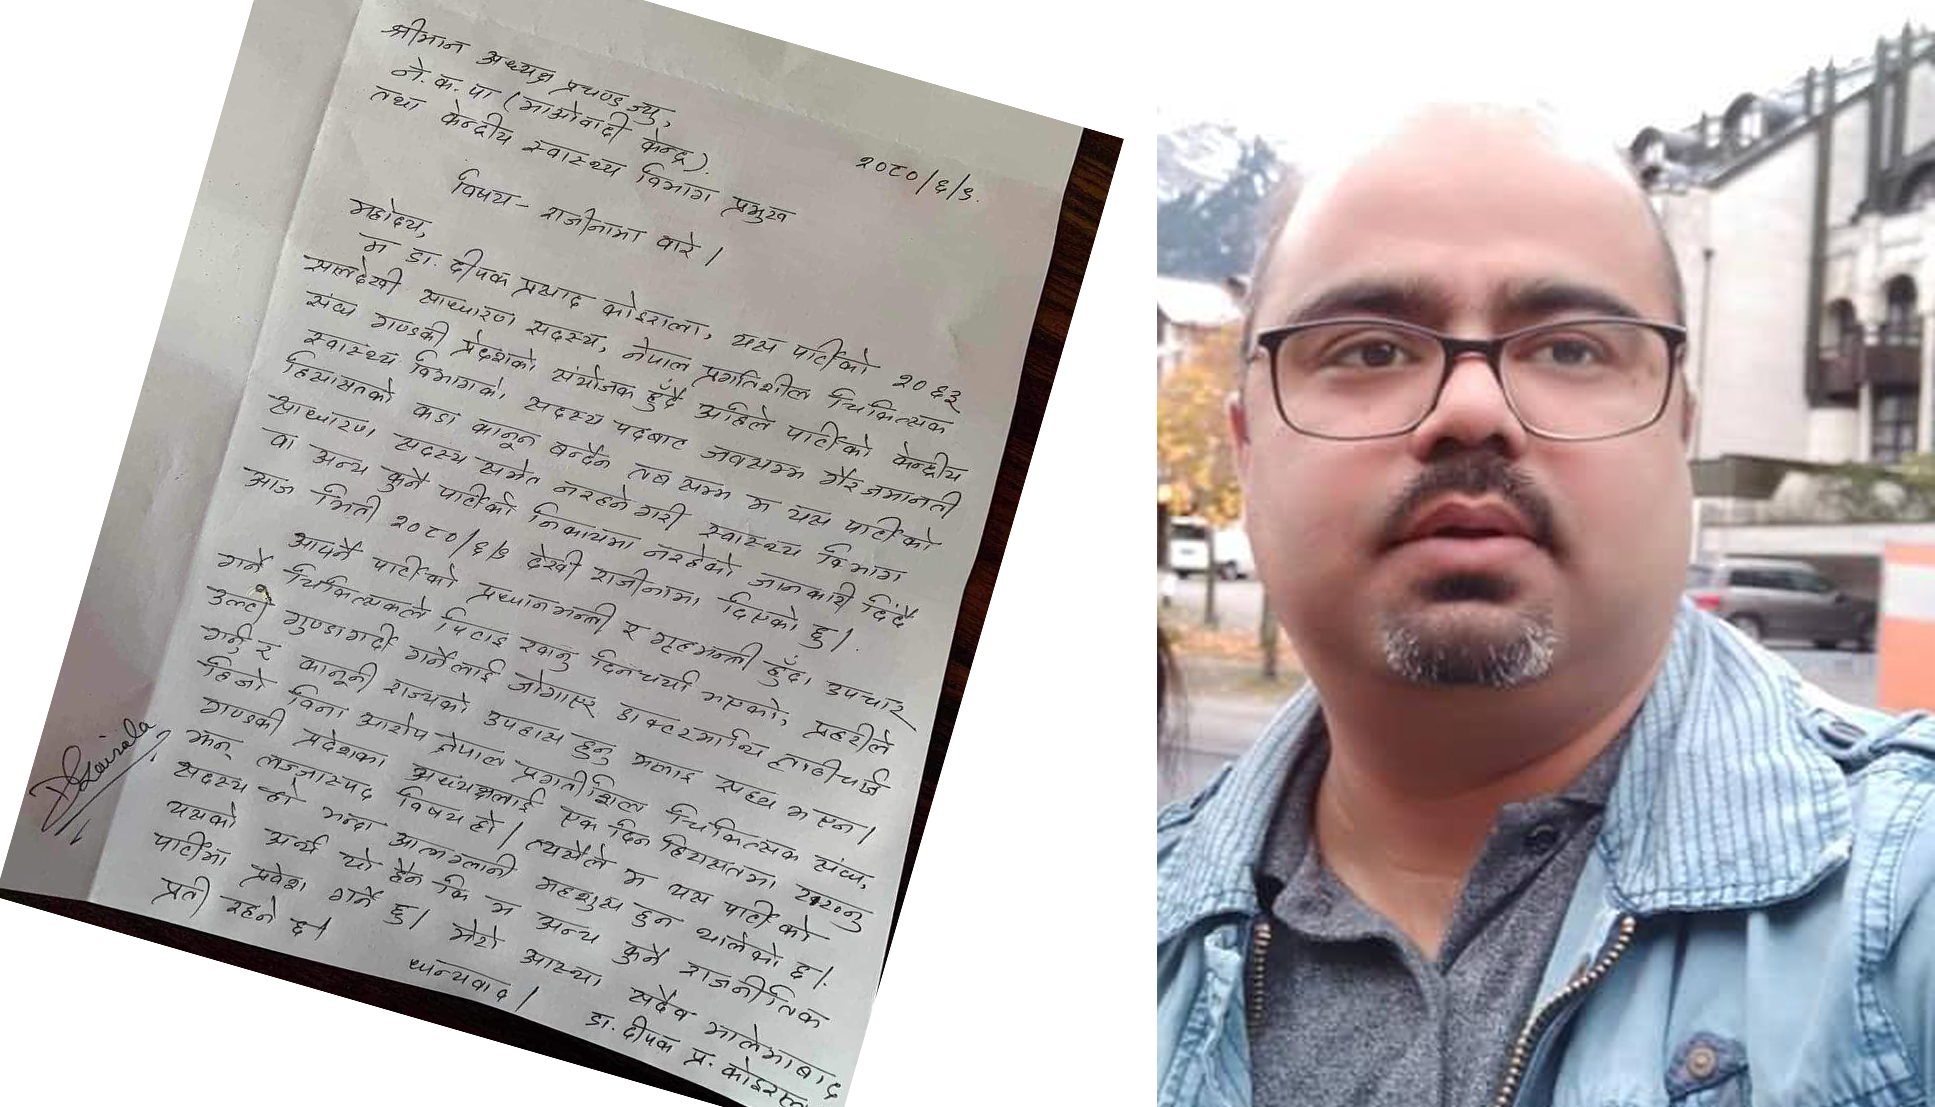 श्रीमान अध्यक्ष प्रचण्ड ज्यु,
ने.क.पा (माओवादी केन्द्र).
तथा केन्द्रीय स्वास्थ्य विभाग प्रमुख
२०८०/६/९.
विषय- राजीनामा वारे।
महोदय,
म डा. दीपक प्रसाद कोइराला, यस पार्टीको २०६३
सालदेखी साधारण सदस्य, नेपाल प्रगतिशील चिकित्सक
संघ गण्डकी प्रदेशको संयोजक हुँदै अहिले पार्टीको केन्द्रीय
स्वास्थ्य विभागको सदस्य पदबाट जवसम्म गैरजमानती
हिरासतको कडा कानून बन्दैन तब सम्म म यस पार्टीको
साधारण सदस्य समेत नरहने गरी स्वास्थ्य विभाग
वा अन्य कुनै पार्टीको निकायमा नरहेको जानकारी दिँदै
आज मिती २०८०/६/९ देखी राजीनामा दिएको छु।
आफ्नै पार्टीको प्रधानमन्त्री र गृहमन्त्री हुँदा उपचार
गर्ने चिकित्सकले पिटाइ खानु दिनचर्या भएको, प्रहरीले
उल्टो गुण्डागर्दी गर्नेलाई जोगाएर डाक्टरमाथि लाठीचार्ज
गर्नु र कानूनी राज्यको उपहास हुनु मलाइ सह्य भएन।
हिजो विना आरोप नेपाल प्रगतीशिल चिकित्सक संघ,
गण्डकी प्रदेशका अध्यक्षलाई एक दिन हिरासतमा राख्नु
झन् लज्जास्पद विषय हो। त्यसैले म यस पार्टीको
सदस्य हो भन्दा आत्मग्लानी महशुस हुन थालेको छ।
यसको अर्थ यो हैन कि म अन्य कुनै राजनीतिक
पार्टीमा प्रवेश गर्ने छु। मेरो आस्था सदैव मालेमाबाद
प्रती रहने छ।
धन्यवाद।
डा. दीपक प्र. कोइराला